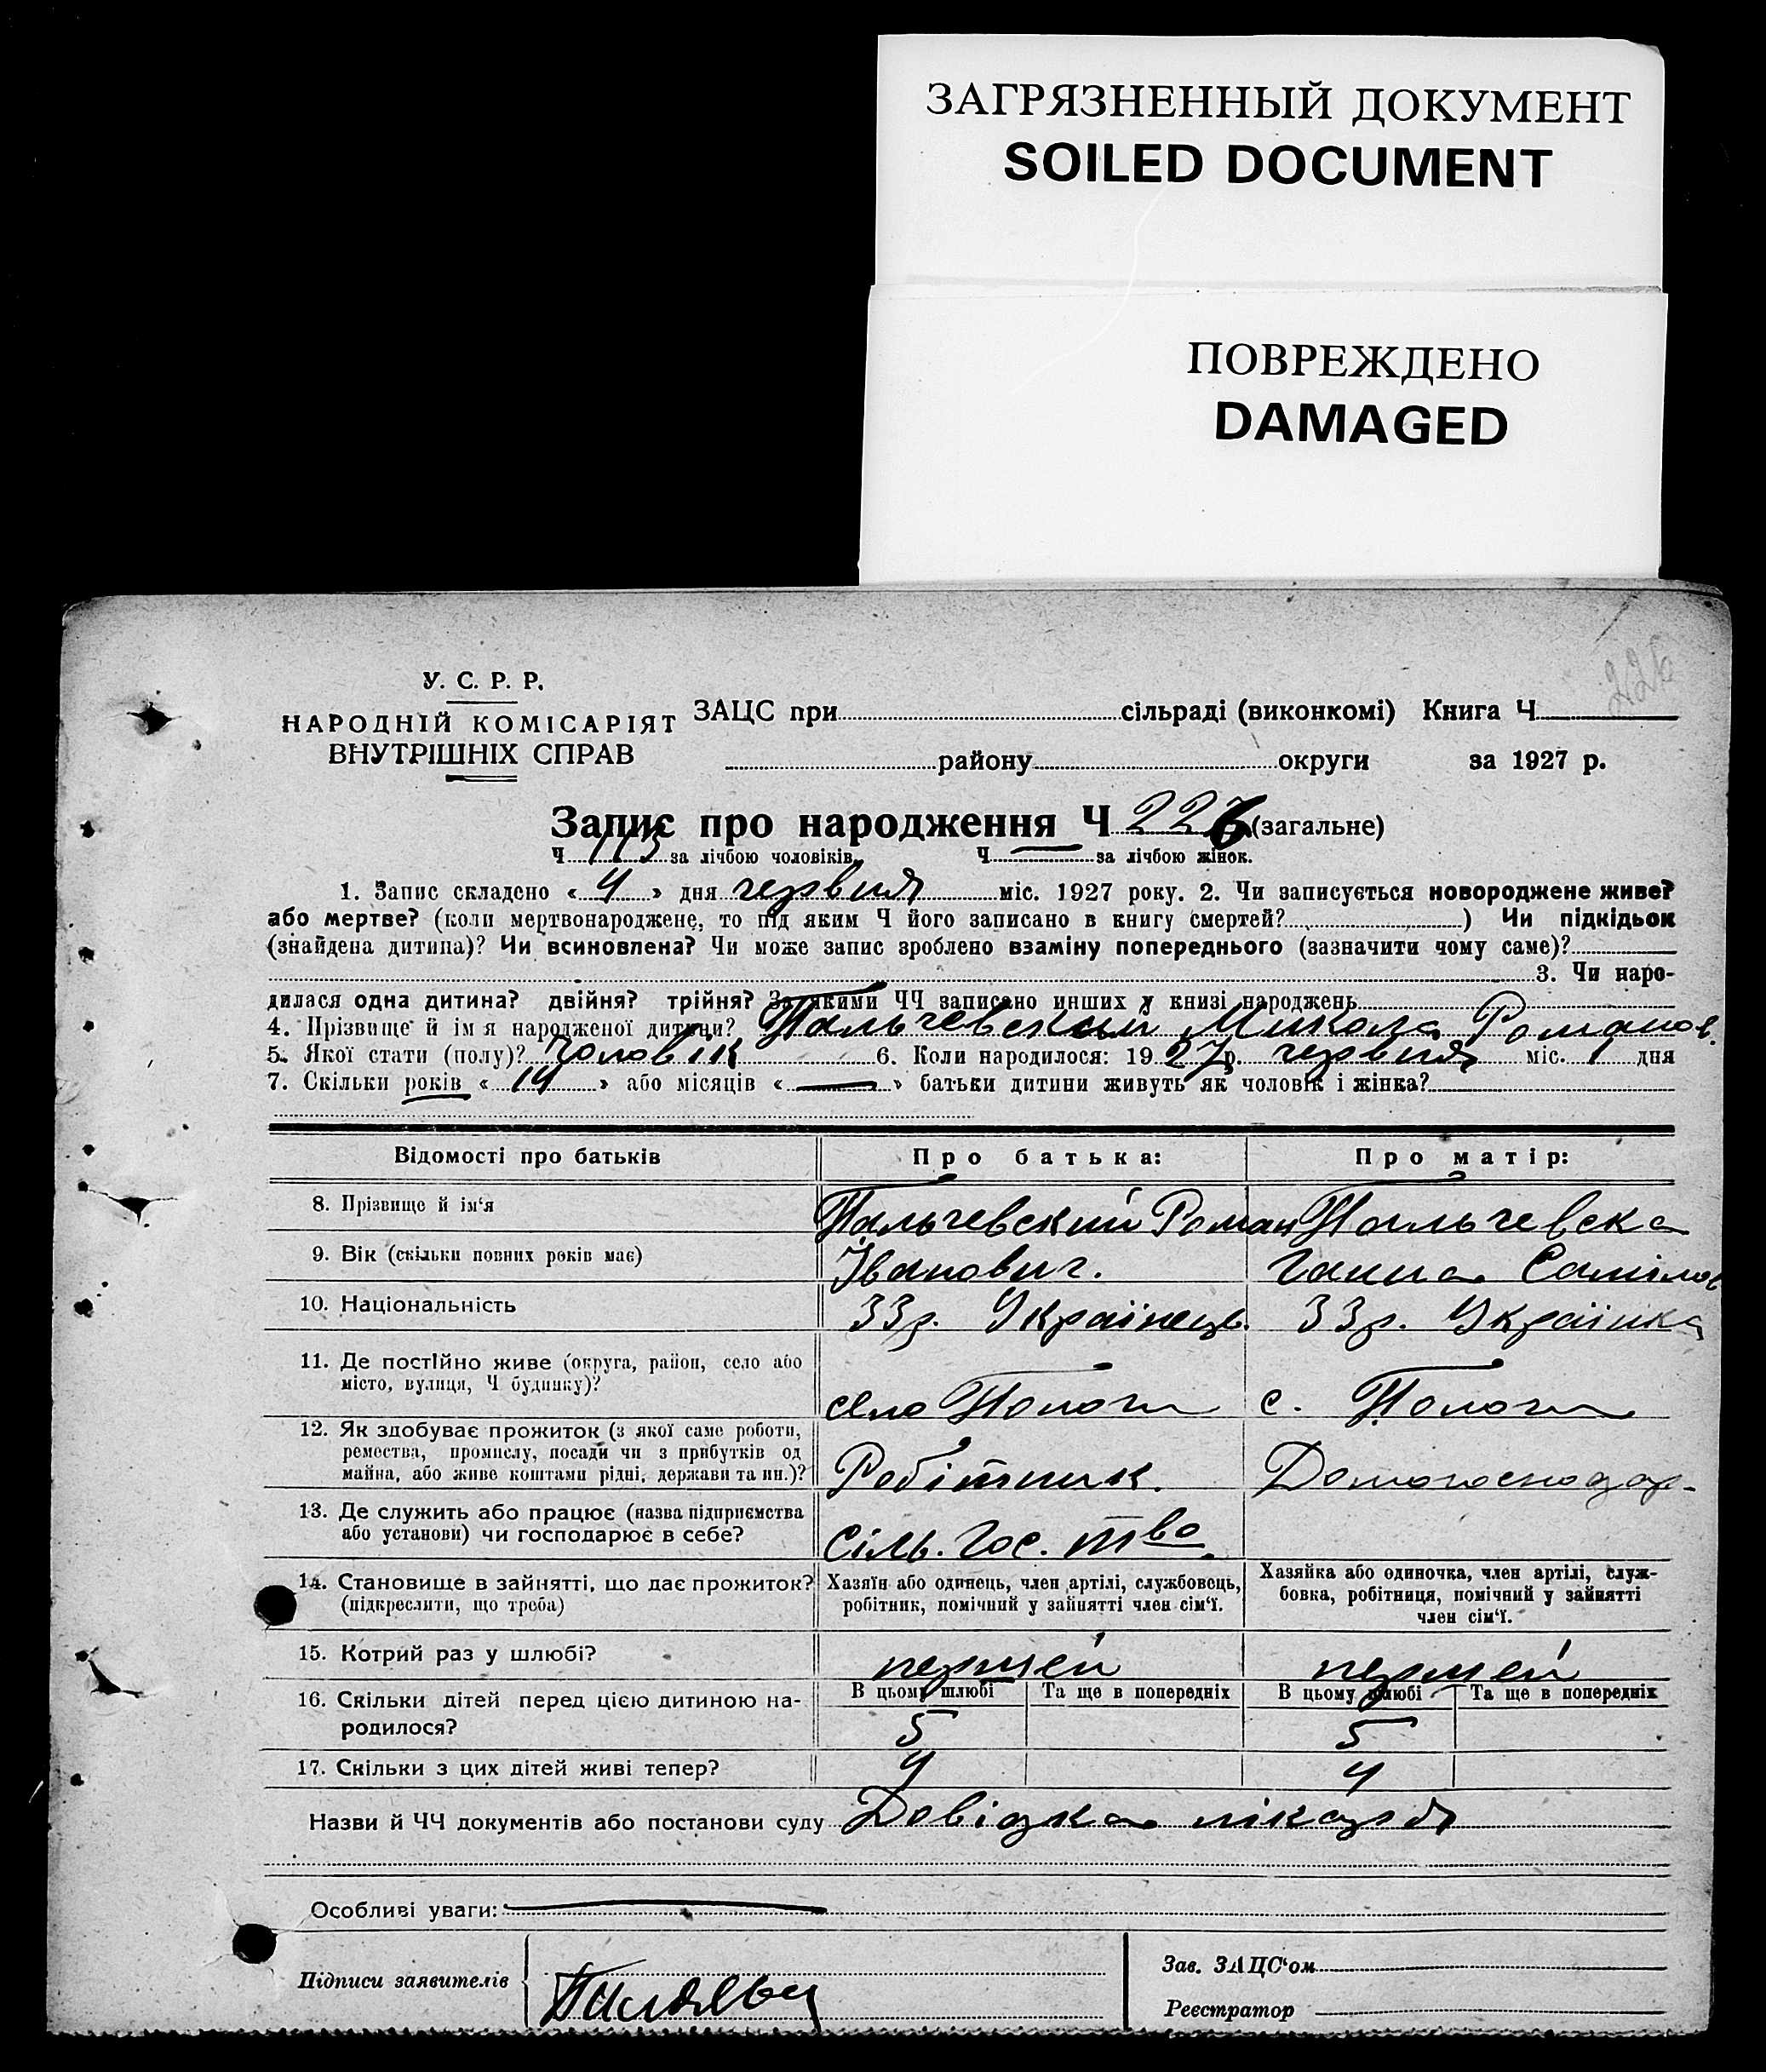 ЗАГРЯЗНЕННЫЙ ДОКУМЕНТ
SOILED DOCUMENT
ПОВРЕЖДЕНО
DAMAGED
226
У. С. Р. Р.
НАРОДНІЙ КОМІСАРІЯТ
ВНУТРІШНІХ СПРАВ
ЗАЦС при сільраді (виконкомі) Книга Ч
району округи за 1927 р.
Запис про народження Ч 226 (загальне)
Ч 113 за лічбою чоловіків. Ч — за лічбою жінок.
1. Запис складено « 4 » дня червня міс. 1927 року. 2. Чи записується новороджене живе?
або мертве? (коли мертвонароджене, то під яким Ч його записано в книгу смертей? ) Чи підкідьок
(знайдена дитина)? Чи всиновлена? Чи може запис зроблено взаміну попереднього (зазначити чому саме)?
3. Чи наро-
дилася одна дитина? двійня? трійня? За якими ЧЧ записано инших у книзі народжень
4. Прізвище й ім я народженої дитини? Пальчевский Микола Романов.
5. Якої стати (полу)? Чоловік 6. Коли народилося: 19 27 р. червня міс. 1 дня
7. Скільки років « 14 » або місяців « — » батьки дитини живуть як чоловік і жінка?
Відомості про батьків Про батька: Про матір:
8. Прізвище й ім‘я Пальчевский Роман Пальчевска
9. Вік (скільки повних років має) Іванович. Ганна Саміл
10. Національність 33р. Українець. 33р. Українка
11. Де постійно живе (округа, район, село або
місто, вулиця, Ч будинку)? село Пологи с. Пологи
12. Як здобуває прожиток (з якої саме роботи,
ремества, промислу, посади чи з прибутків од
майна, або живе коштами рідні, держави та ин.)? Робітник. Домогосподар.
13. Де служить або працює (назва підприємства
або установи) чи господарює в себе? Сіль. Гос. тво.
14. Становище в зайнятті, що дає прожиток?
(підкреслити, що треба)
Хазяїн або одинець, член артілі, службовець,
робітник, помічний у зайнятті член сім‘ї.
Хазяйка або одиночка, член артілі, служ-
бовка, робітниця, помічний у зайнятті
член сім‘ї.
15. Котрий раз у шлюбі? перший перший
16. Скільки дітей перед цією дитиною на-
родилося?
В цьому шлюбі Та ще в попередніх В цьому шлюбі Та ще в попередніх
5 5
17. Скільки з цих дітей живі тепер? 4 4
Назви й ЧЧ документів або постанови суду Довідка лікаря
Особливі уваги: —
Підписи заявителів
Зав. ЗАЦС‘ом
Реєстратор